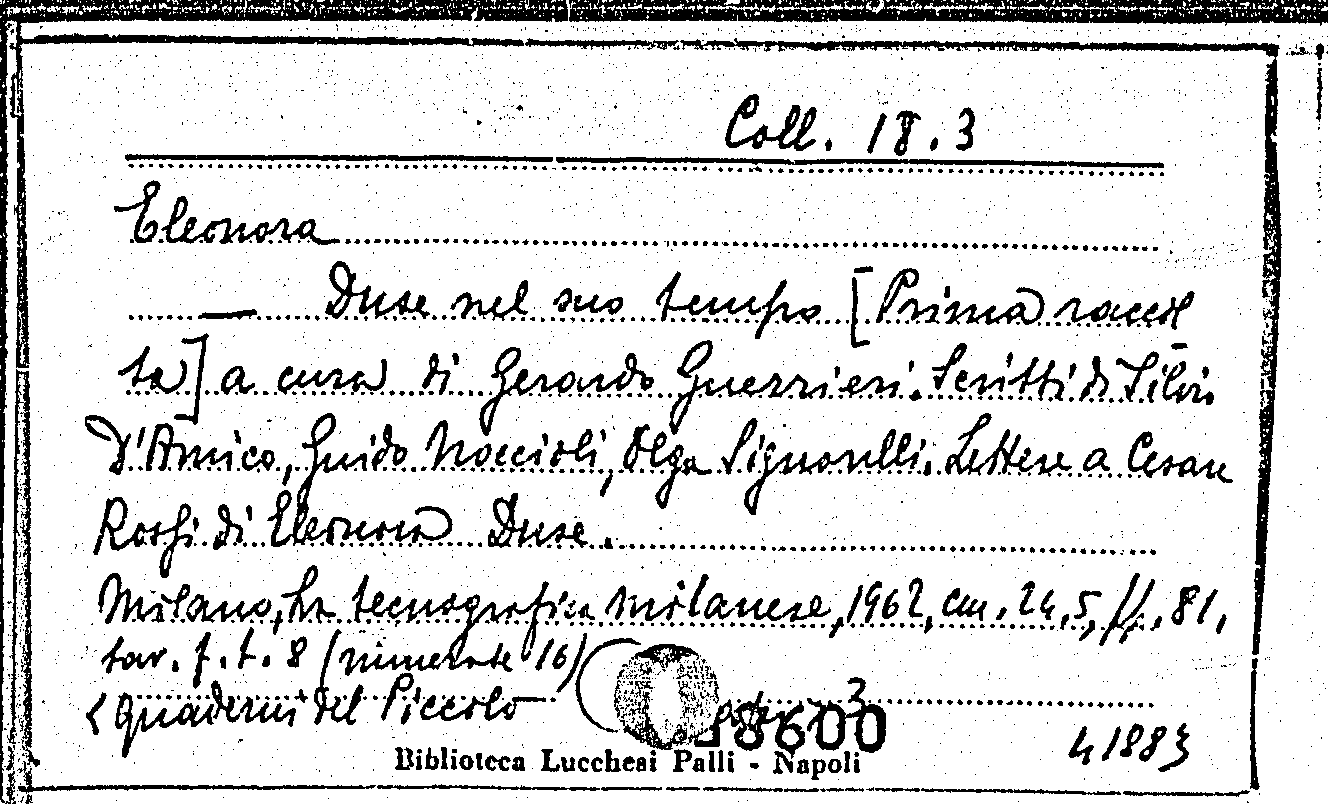 Coll. 18.3
Eleonora
— Duse nel suo tempo [Prima raccol
ta] a cura di Gerardo Guerrieri. Scritti di Silvio
D'Amico, Guido Noccioli, Olga Signorelli. Lettere a Cesare
Rossi di Eleonora Duse.
Milano, La tecnografica milanese, 1962, cm. 24,5, ff. 81,
tav. f. t. 8 (numerate 16)
<Quaderni del Piccolo 3
8600
41883
Biblioteca Lucchesi Palli - Napoli